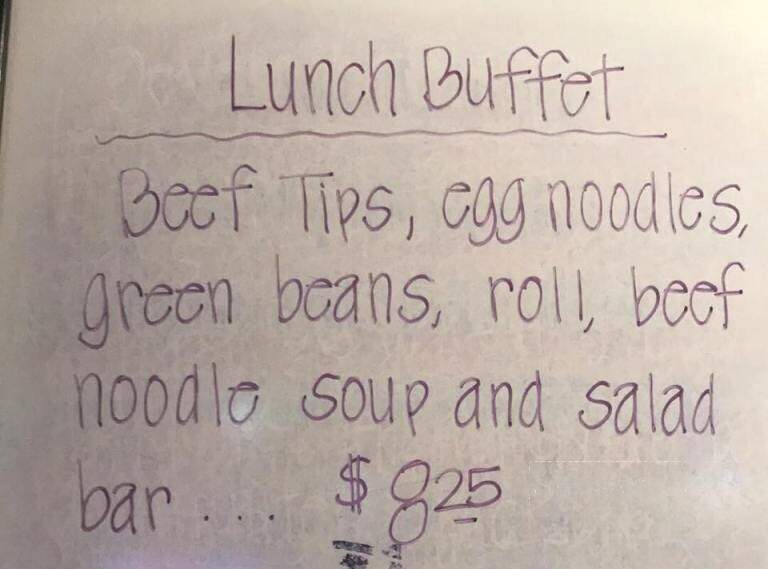 Lunch Buffet
Beef Tips, egg noodles,
green beans, roll, beef
noodle soup and salad
bar .... $ 8 25